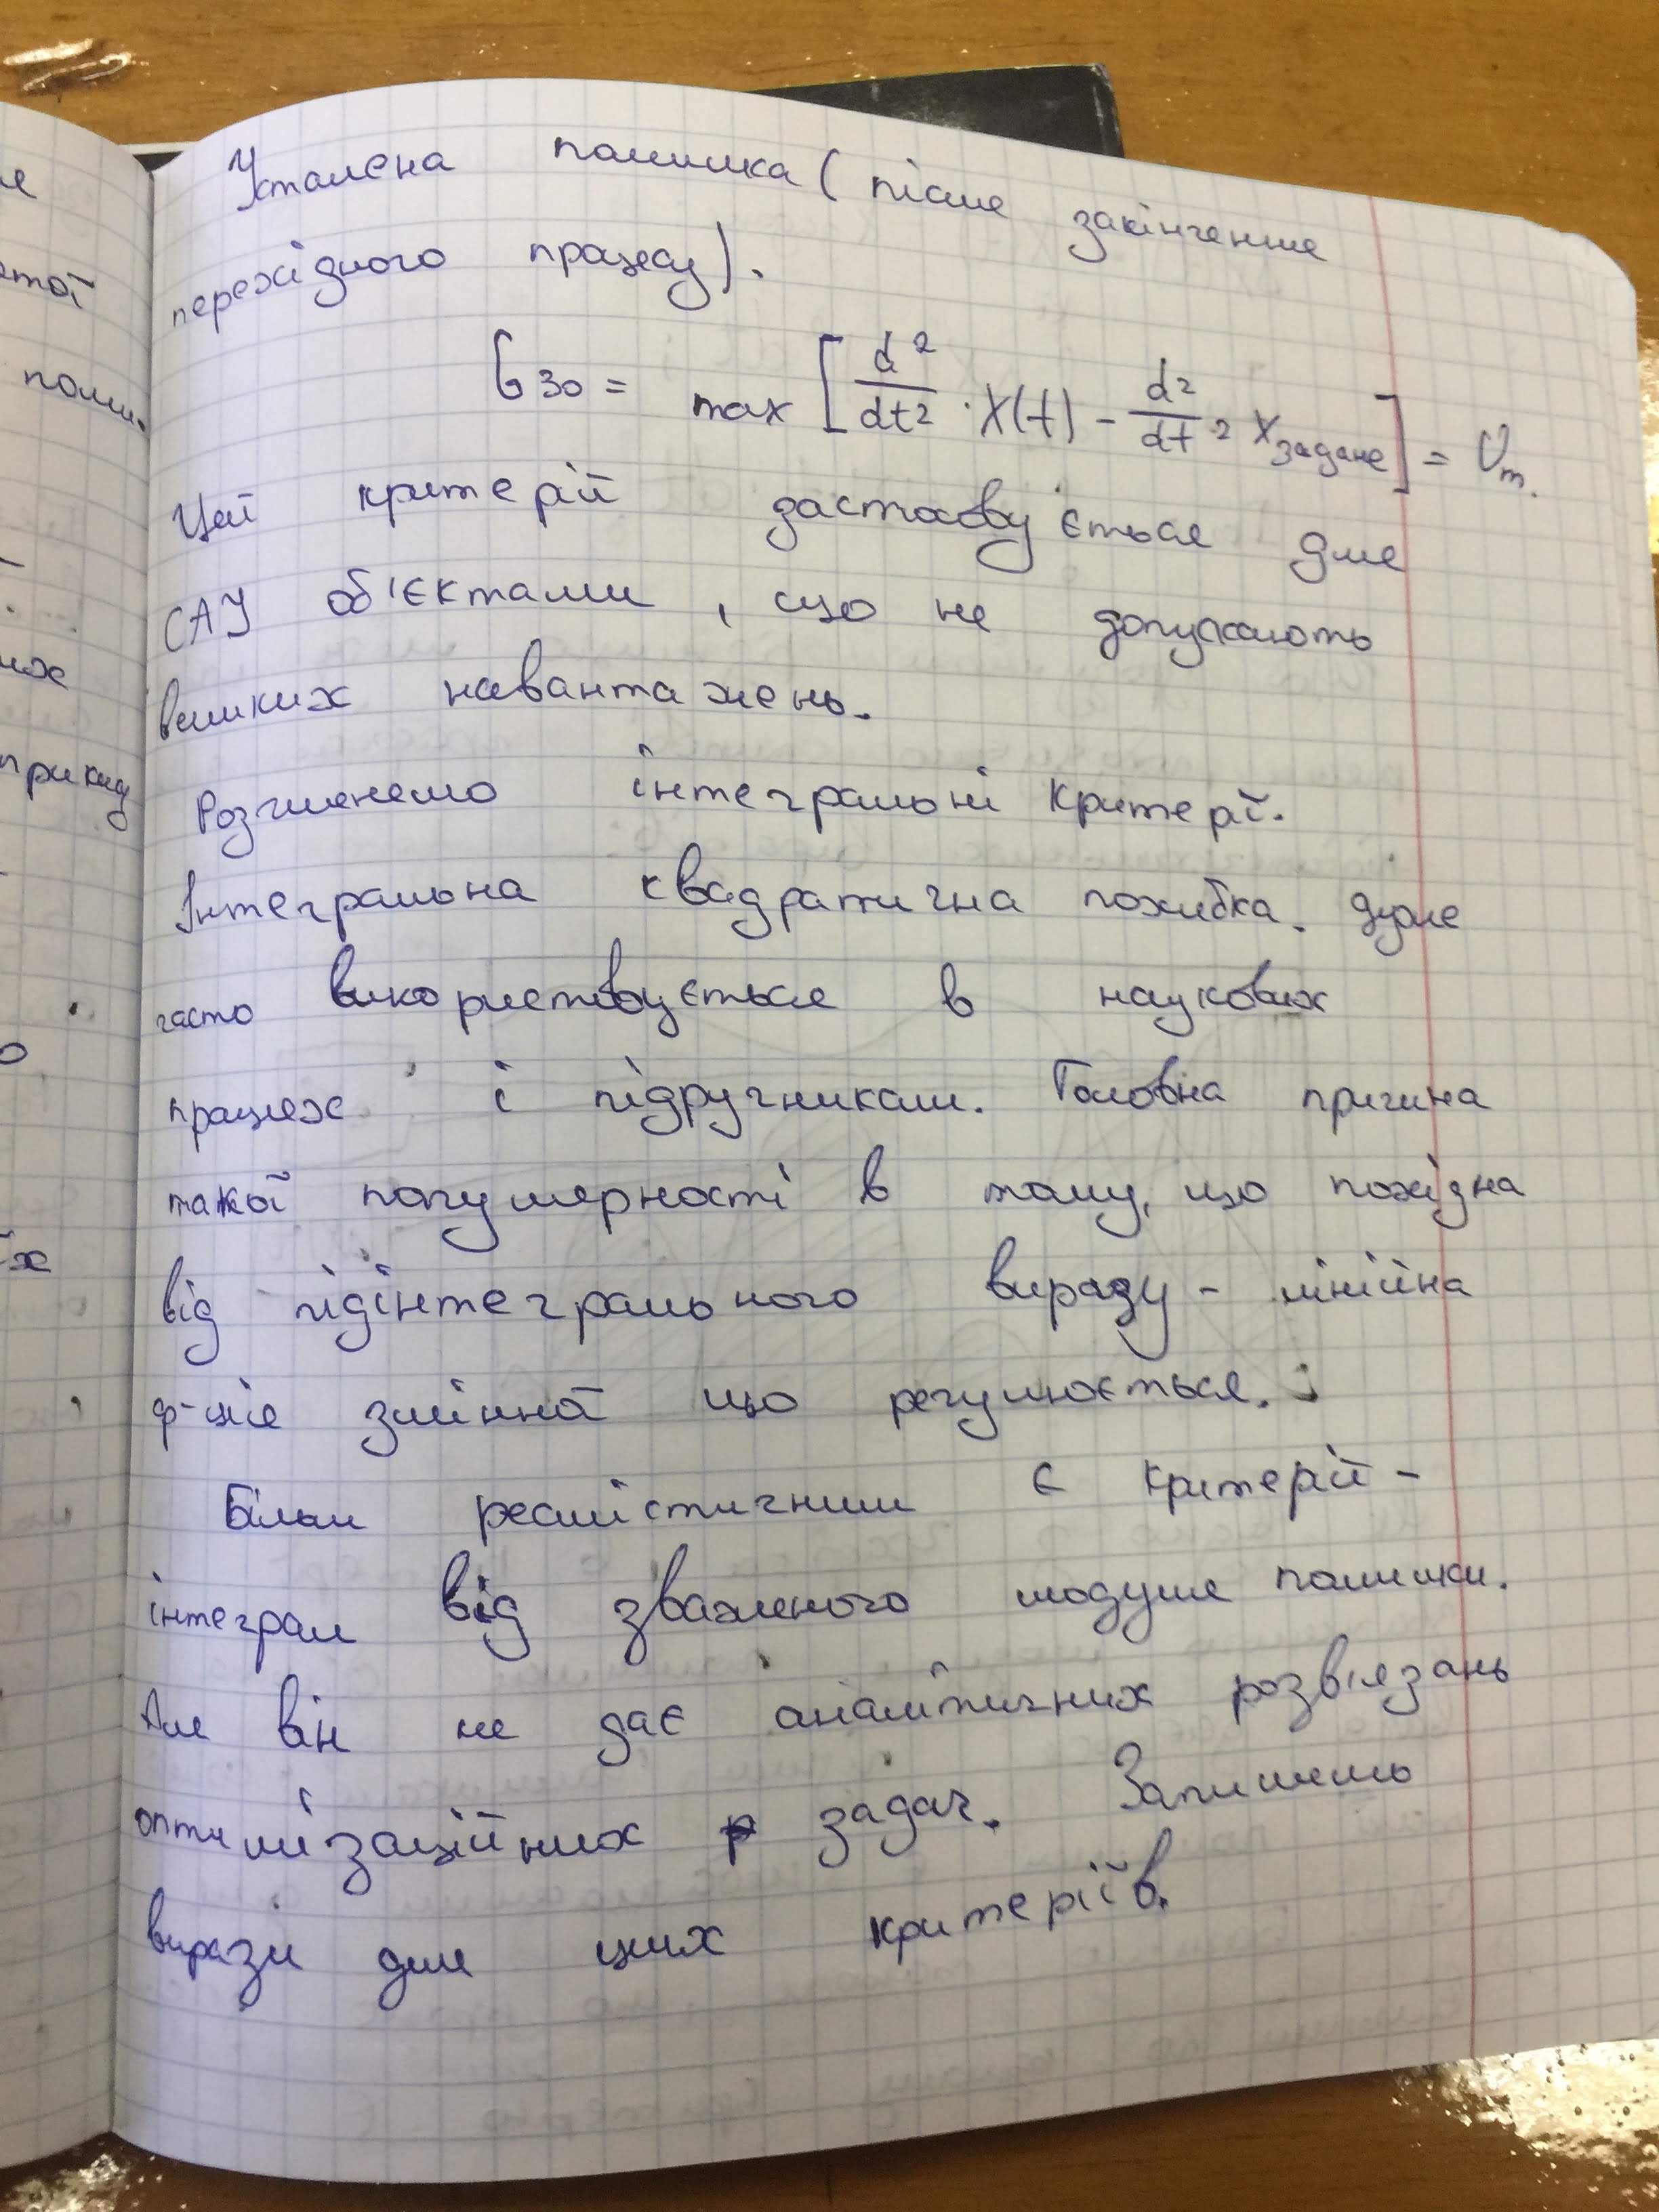 Усталена помилка (після закінчення
перехідного процесу).
G зо = max [ d²/dt² · X(t) - d²/dt² X задане ] = Um.
Цей критерій застосовується для
САУ об'єктами, що не допускають
великих навантажень.
Розглянемо інтегральні критерії.
Інтегральна квадратична похибка. Дуже
часто використовується в наукових
працях і підручниках. Головна причина
такої популярності в тому, що похідна
від підінтегрального виразу - лінійна
ф-ція змінної що регулюється.
Більш реалістичним є критерій -
інтеграл від зваженого модуля помилки.
Але він не дає аналітичних розв'язань
оптимізаційних задач. Запишемо
вирази для цих критеріїв.